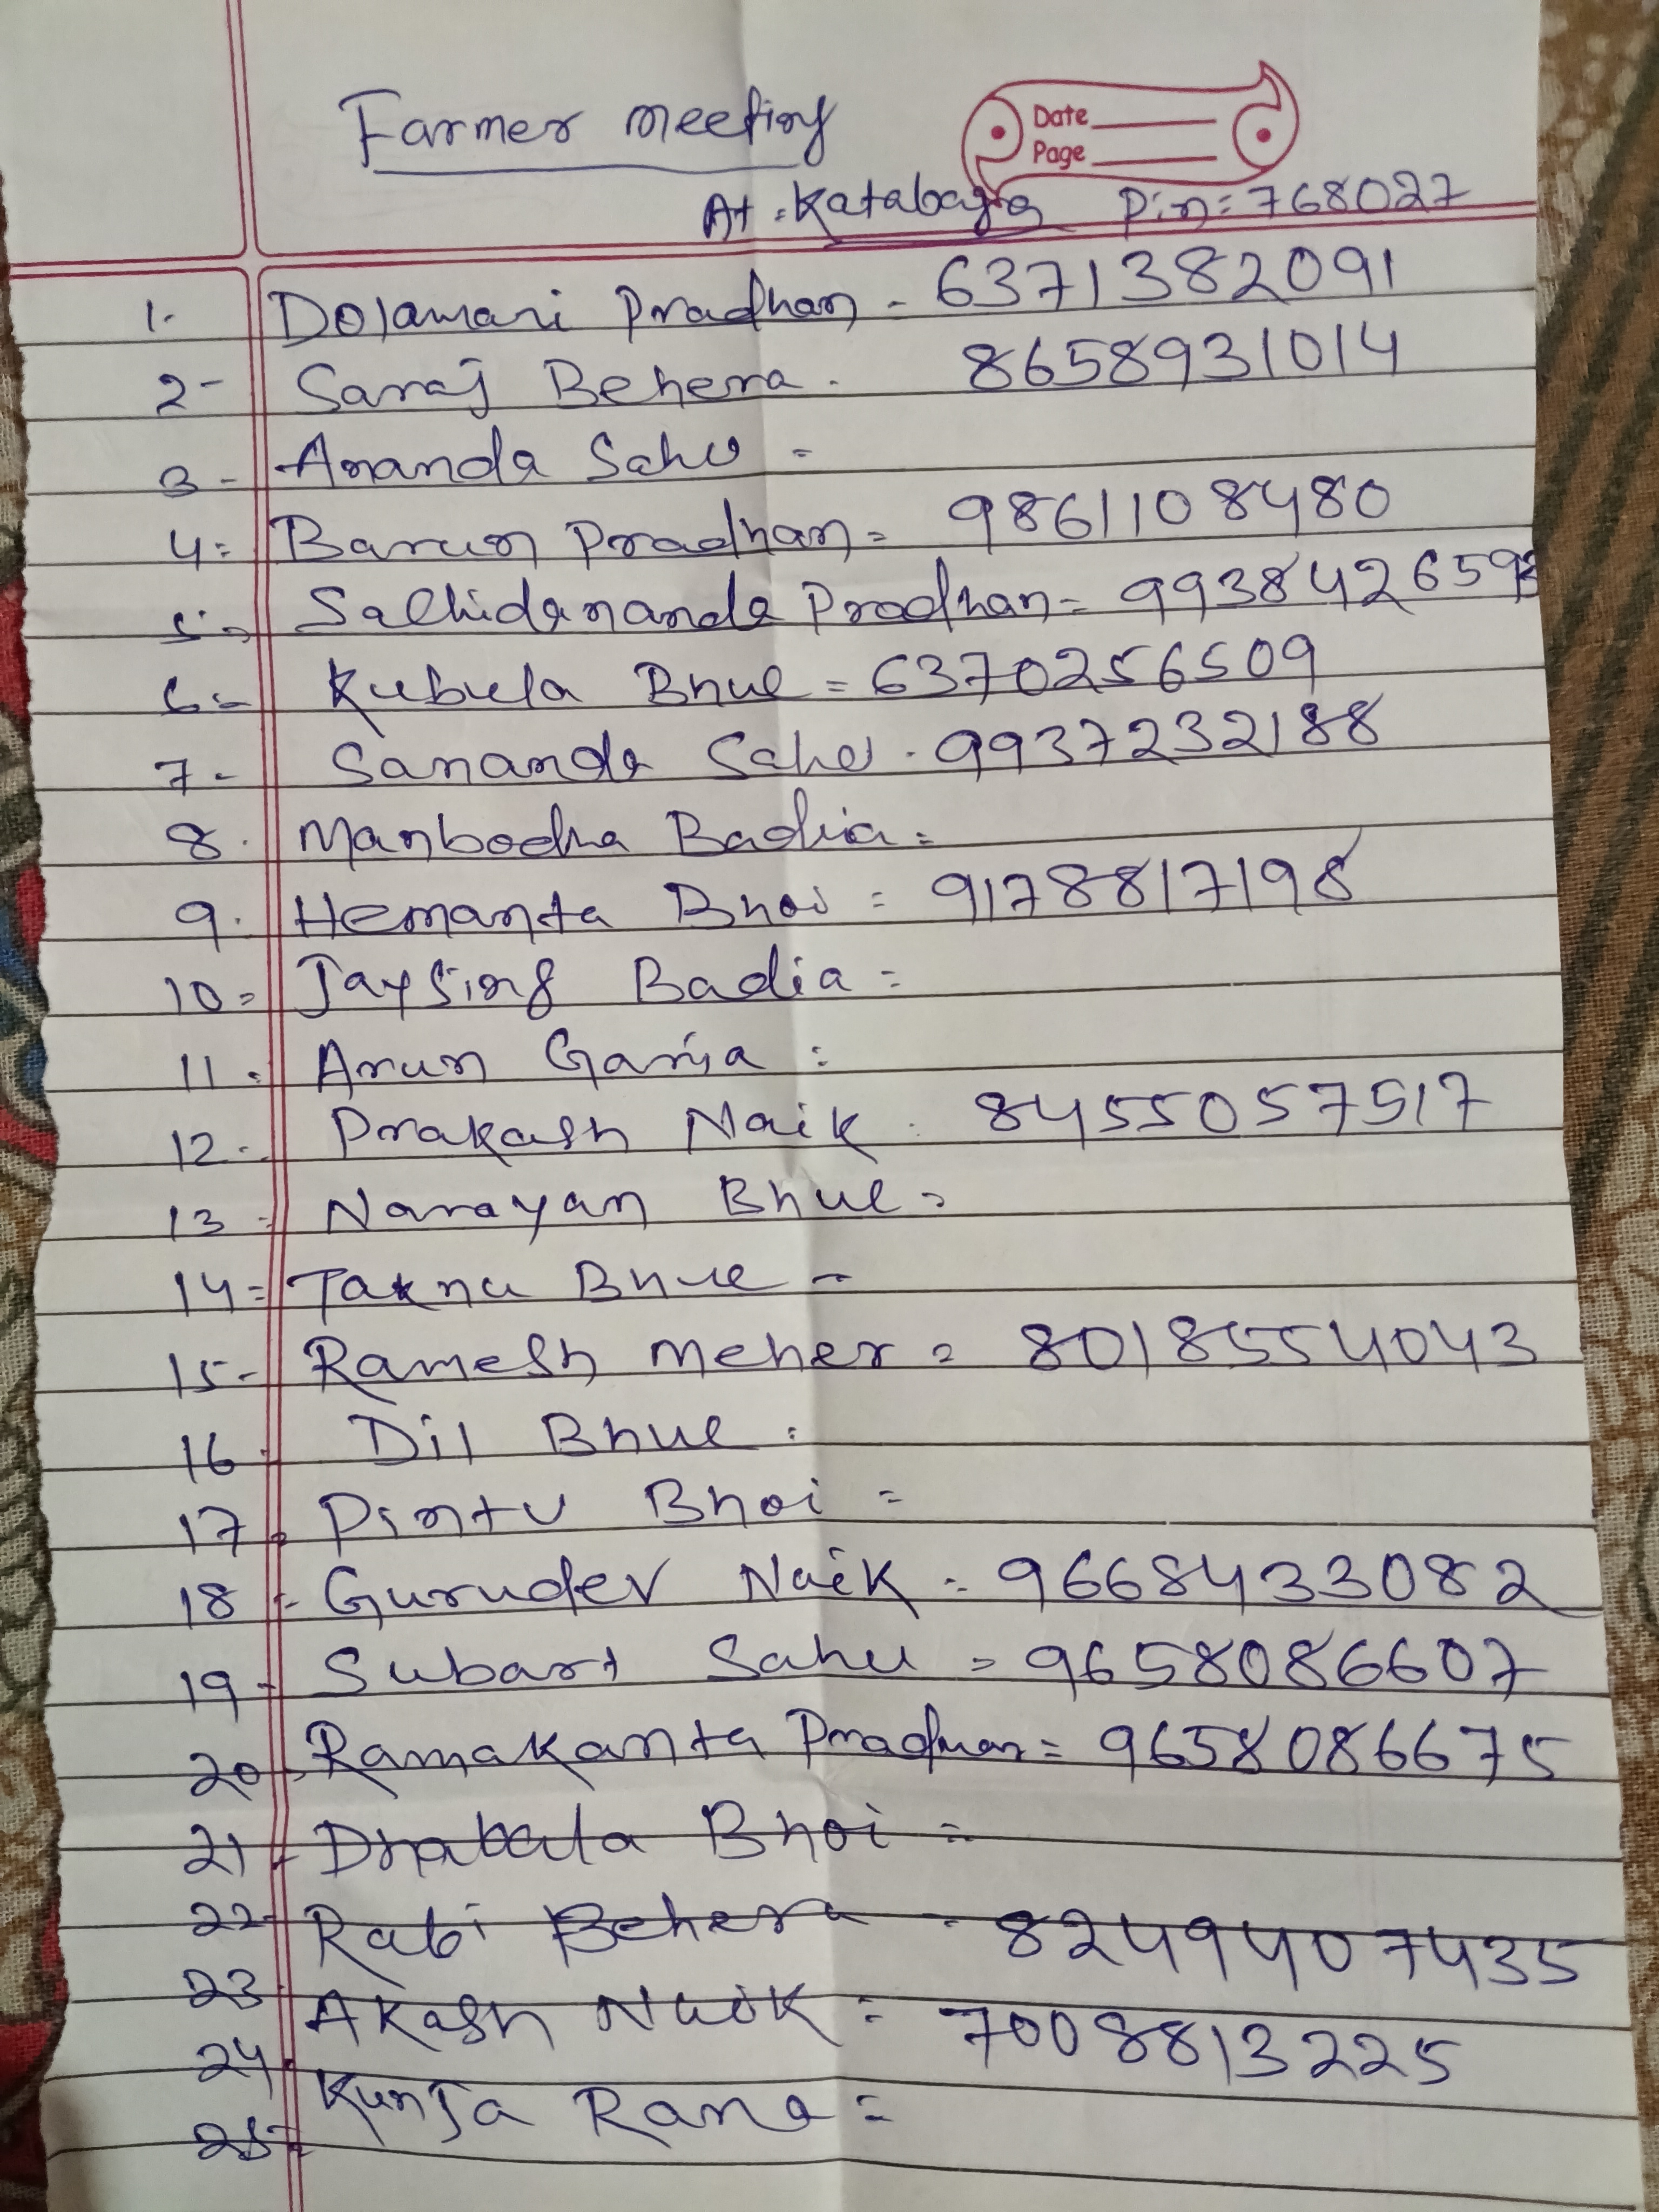 Farmer meeting
Date
Page
At = Katabaga Pin = 768027
1. Dolamani Pradhan - 6371382091
2 - Saroj Behera - 8658931014
3 - Ananda Sahu =
4 = Barun Pradhan = 9861108480
5 = Sachidananda Pradhan = 993842659
6 = Kubula Bhue = 6370256509
7 - Sananda Sahu - 9937232188
8. Manbodha Badia =
9. Hemanta Bhoi = 9178817198
10 = Jaysing Badia =
11. Arun Garia :
12. Prakash Naik . 8455057517
13 = Narayan Bhue =
14 = Takna Bhue -
15 - Ramesh Meher = 8018554043
16 . Dil Bhue :
17. Pintu Bhoi =
18 - Gurudev Naik - 9668433082
19 - Subart Sahu = 9658086607
20. Ramakanta Pradhan = 9658086675
21 - Dhabala Bhoi =
22 - Rabi Behera - 8249407435
23 Akash Naik = 7008813225
24. Kunja Rana =
25 -